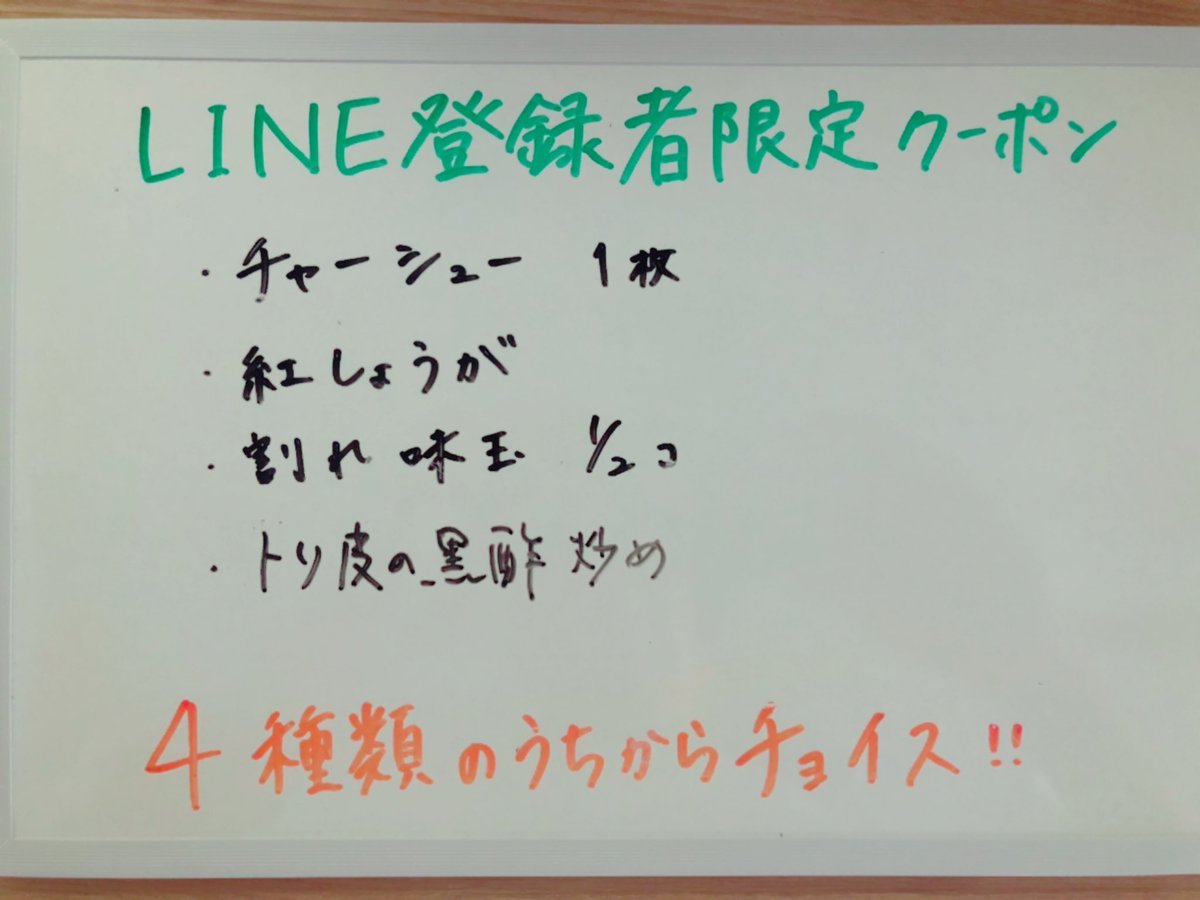 LINE登録者限定クーポン
・チャーシュー 1枚
・紅しょうが
・割れ味玉 1/2コ
・トリ皮の黒酢炒め
4種類のうちからチョイス!!